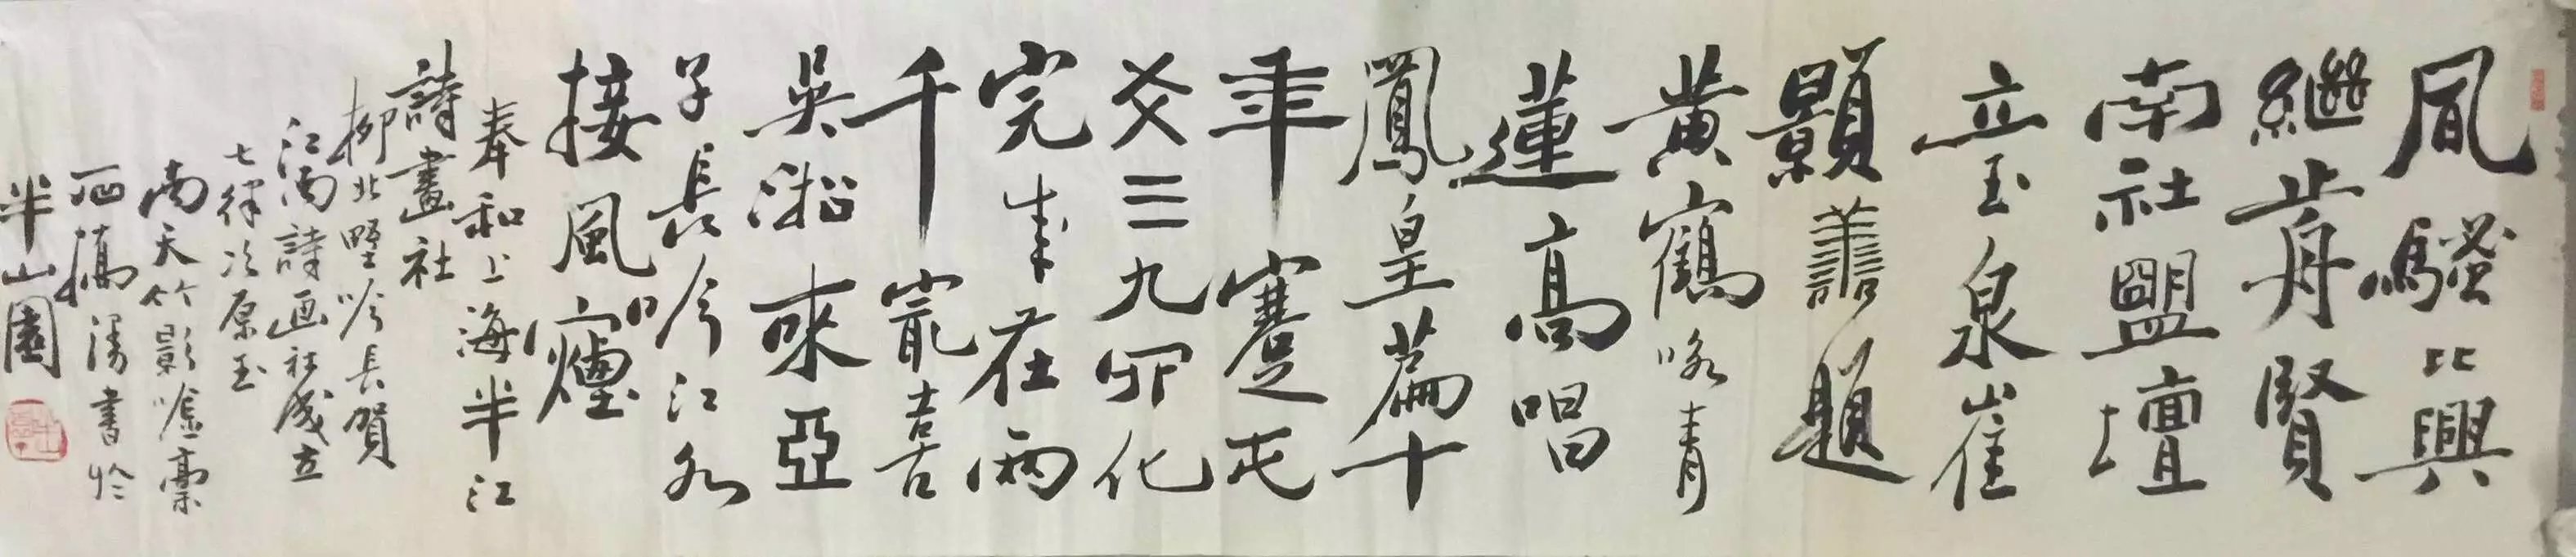 風騷比興
繼前賢
南社盟壇
立玉泉崔
顥善題
黃鶴咏青
蓮高唱
鳳皇篇十
年蹇屯
爻三九卯化
完成在兩
千寵喜
吳淞來亞
子長吟江
接風
奉和上海半江
詩畫社
柳北野吟長賀
江南詩画社成立
七律次原玉
南天竹影嘘稾
書於
半山園